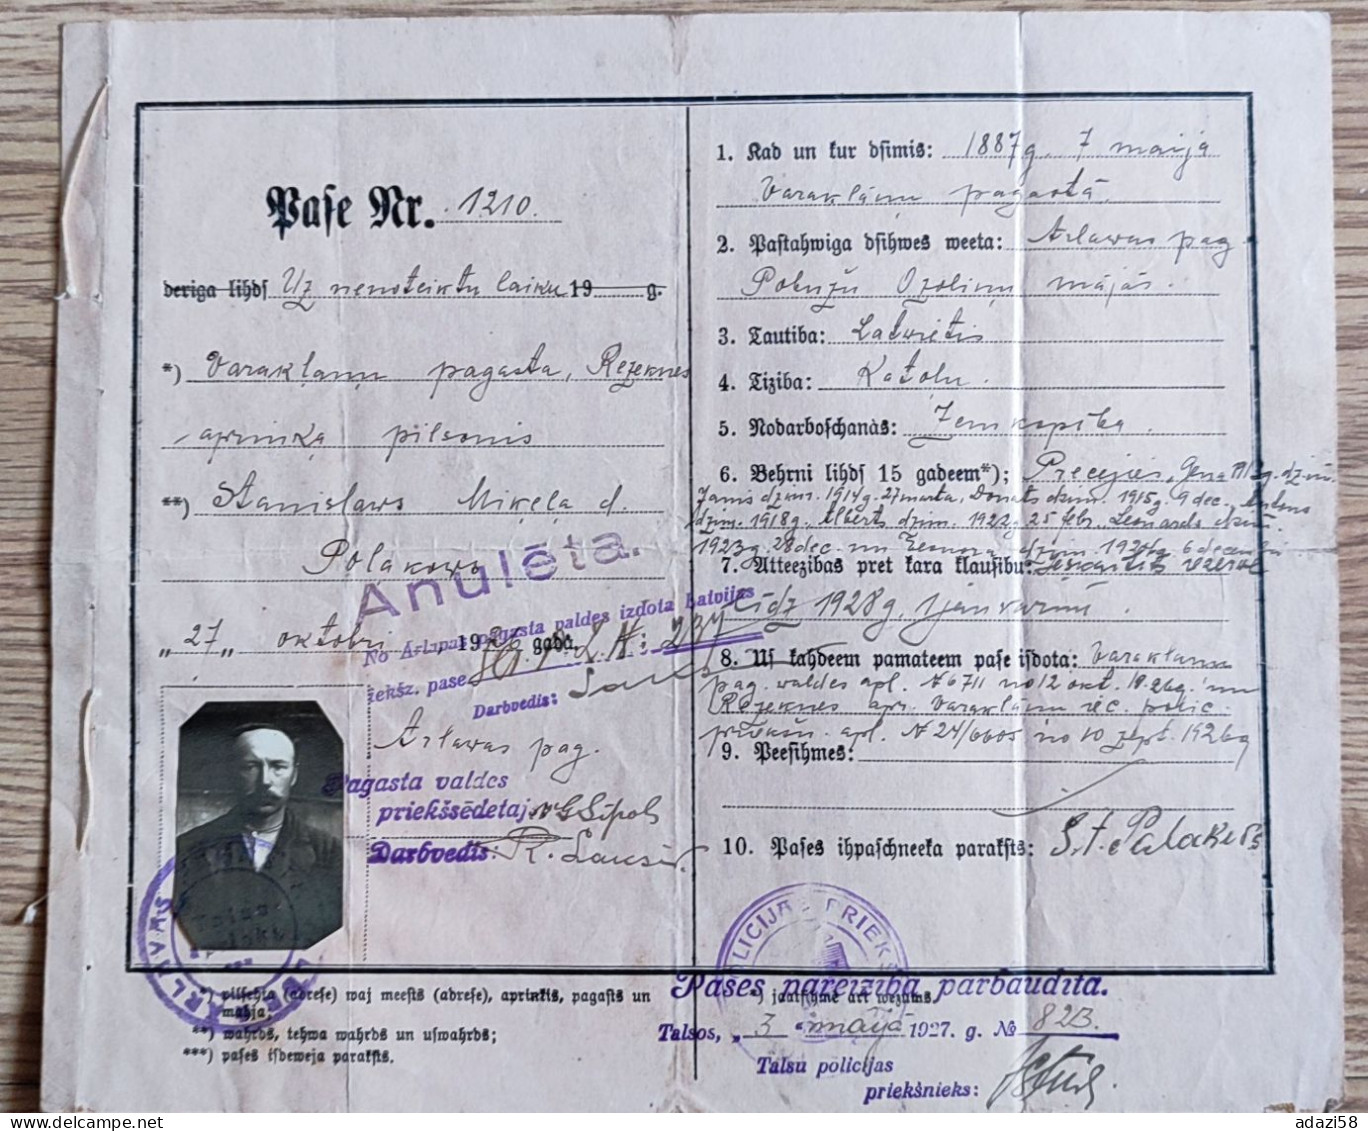 Paſe Nr. 1210.
deriga lihdſ Uz nenoteiktu laiku 19 g.
*) Varakļanu pagasta, Rezeknes
apriņķa pilsonis
**) Stanislaws Miķeļa d.
Poļakows
Anulēta.
"27" oktobri 1926 gada.
No Arlavas pagasta valdes izdota Latvijas
iekšz. pase
Darbvedis:
Arlawas pag.
Pagasta valdes
priekšsēdetajs v. G. Sipols
Darbvedis:
*) pilſehta (adreſe) waj meeſts (adreſe), aprinkis, pagaſts un
mahja;
**) wahrds, tehwa wahrds un uſwahrds;
***) paſes iſdeweja parakſts.
1. Kad un kur dſimis: 1887 g. 7 maijā
Varakļanu pagastā.
2. Paſtahwiga dſihwes weeta: Arlawas pag
Ozoliņu mājās.
3. Tautiba: Latwietis
4. Tiziba: Katoļu.
5. Nodarboſchanàs: Zemkopība.
6. Behrni lihdſ 15 gadeem*); Precejies,
Janis dzim. 1914 g. 27 marta, Donats dzim. 1915 g. 9 dec.,
dzim. 1918 g. Alberts dzim. 1922 g. 25 febr. Leonards dzim.
1923 g. 28 dec. un Leonora dzim. 1924 g. 6 decembri
7. Atteezibas pret kara klauſibu: Ieskaitits rezervē
līdz 1928 g. janvarim.
8. Uſ kahdeem pamateem paſe iſdota: Varakļanu
pag. waldes apl. № 6711 no 12 okt. 1926 g. un
Rezeknes apr. Varakļanu iec. polic.
priekšn. apl. № 24/6605 no 10 sept. 1926 g
9. Peeſihmes:
10. Paſes ihpaſchneeka parakſts: St. Palakovs
POLICIJAS PRIEK
*) jaatſihmē arī wezums.
Pases pareiziba parbaudita.
Talsos, "3" maijā 1927. g. № 823.
Talsu policijas
priekšnieks:
adazi58